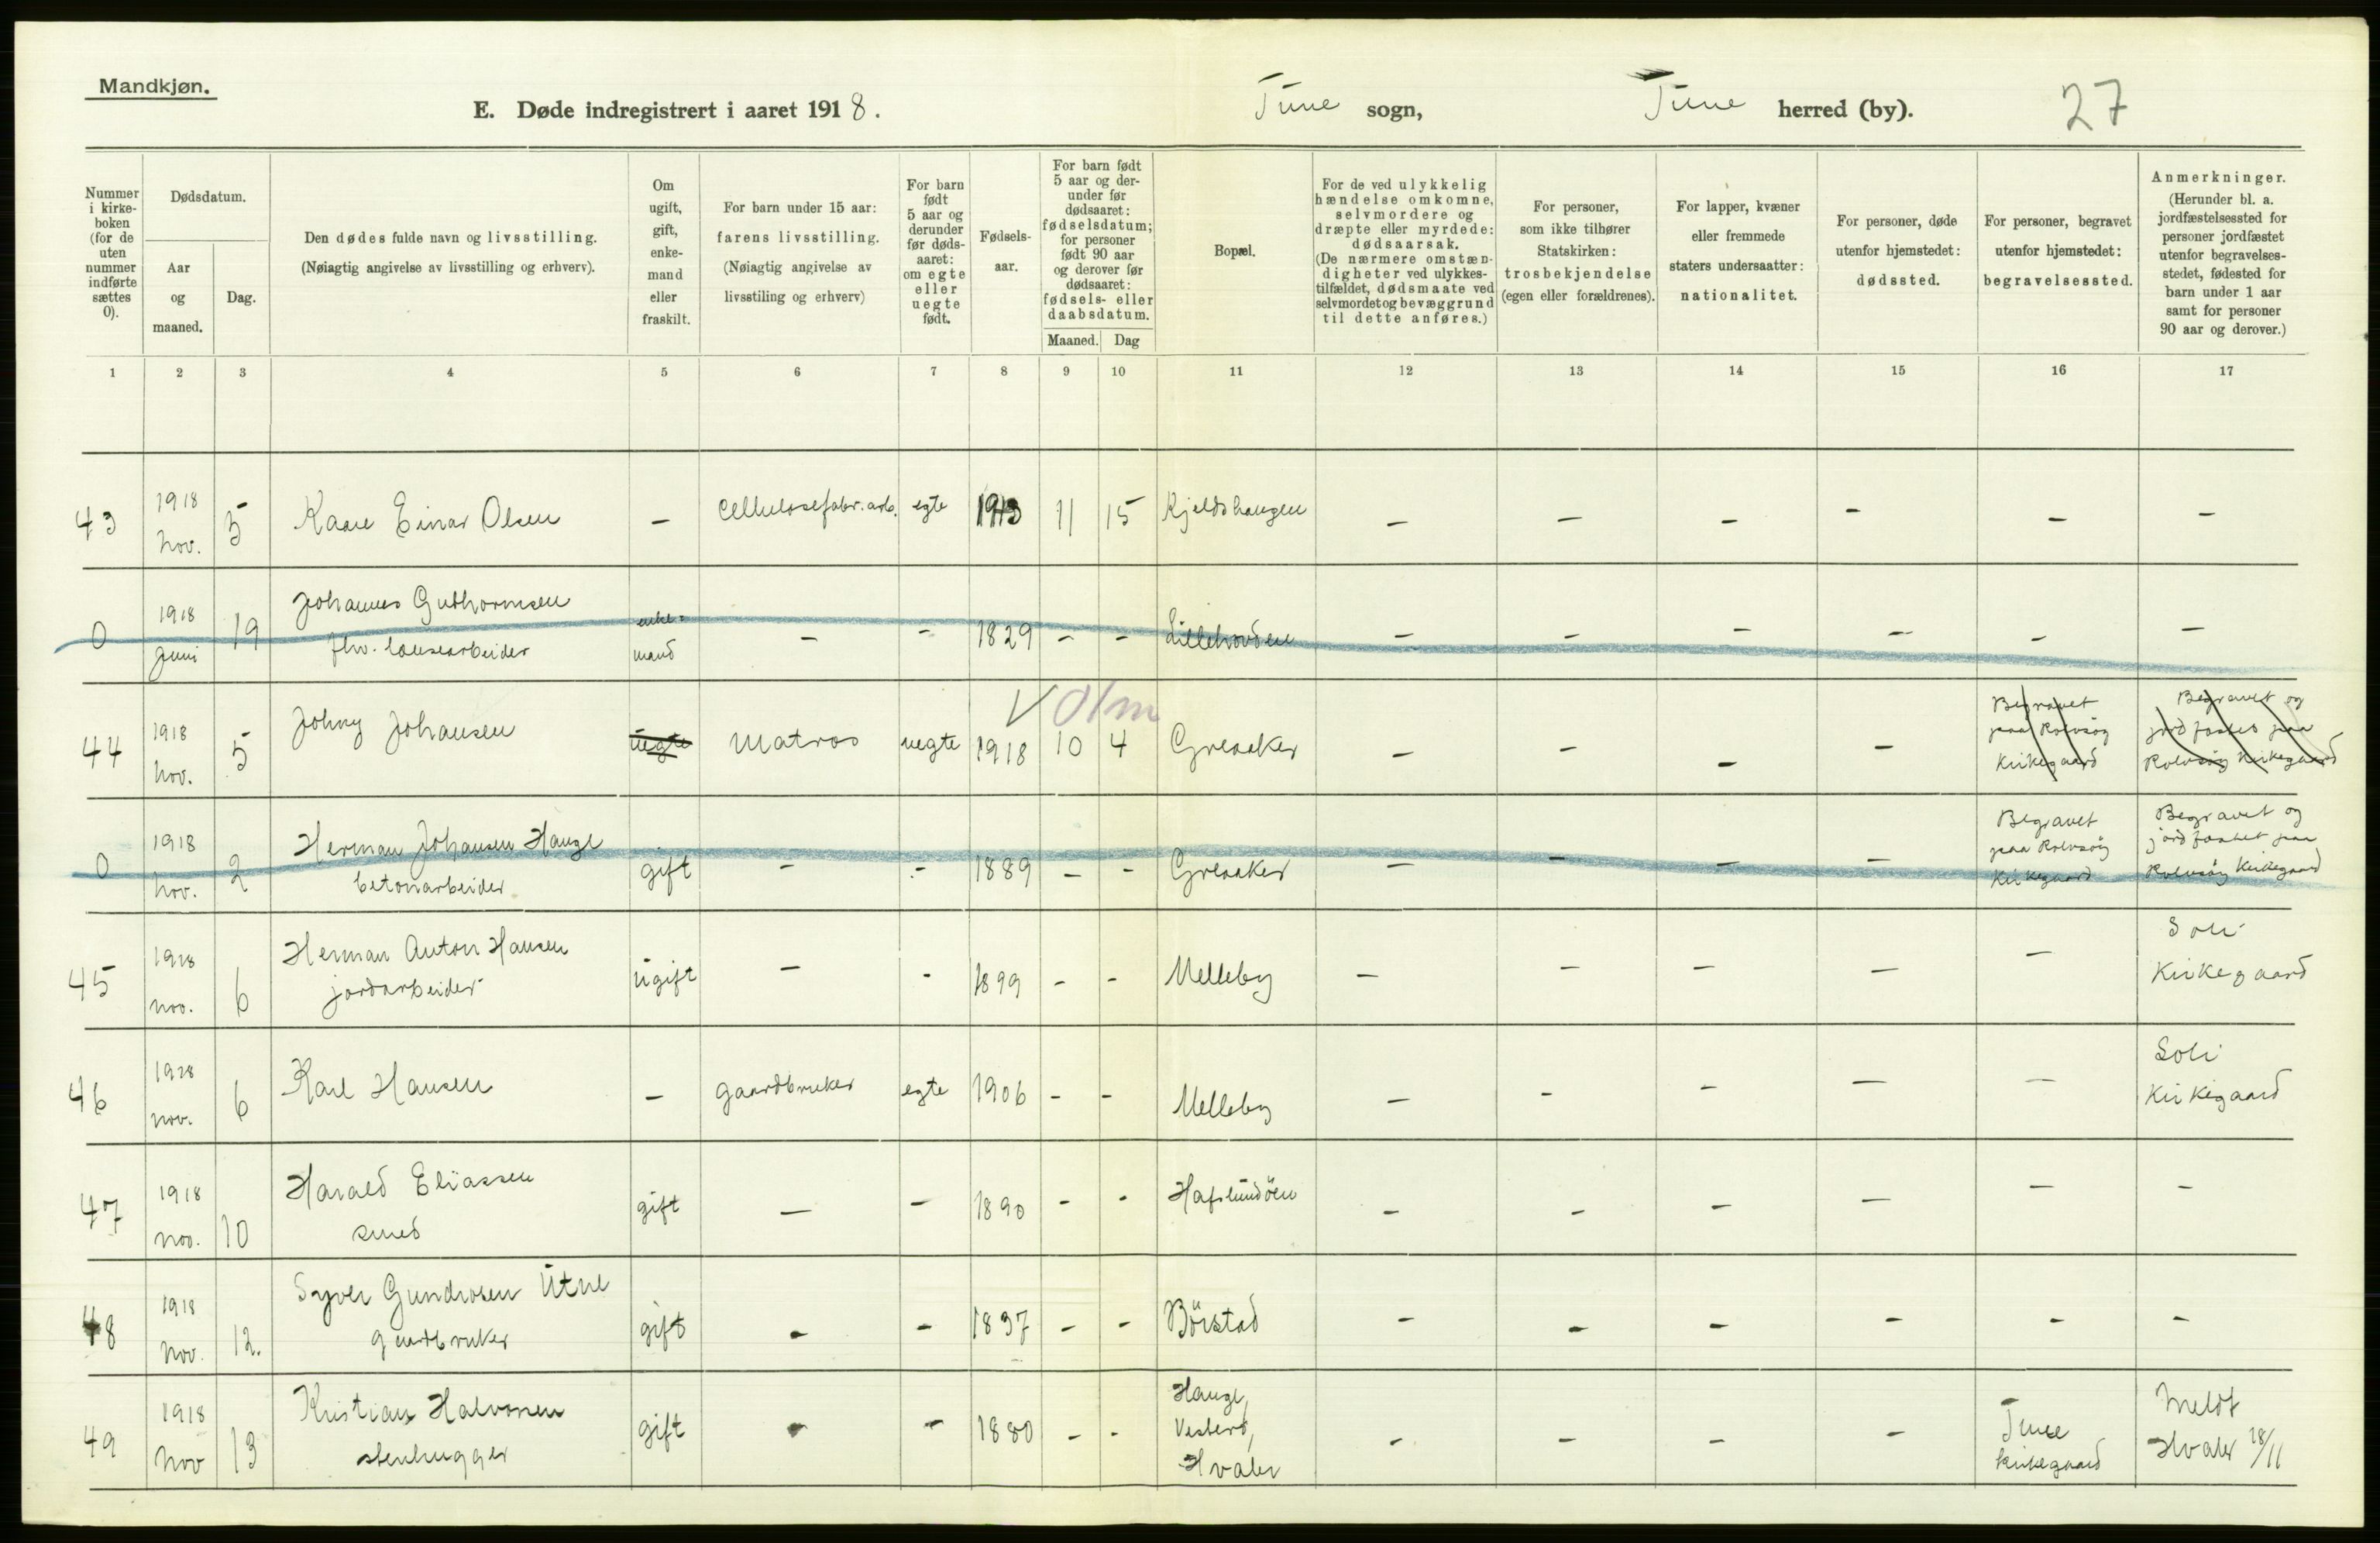 Mandkjøn.
E. Døde indregistrert i aaret 1918.
Tune sogn,
Tune herred (by).
27
Nummer i kirkeboken (for de uten nummer indførte sættes 0).
Dødsdatum.
Aar og maaned.
Dag.
Den dødes fulde navn og livsstilling.
(Nøiagtig angivelse av livsstilling og erhverv).
Om ugift, gift, enkemand eller fraskilt.
For barn under 15 aar: farens livsstilling.
(Nøiagtig angivelse av livsstiling og erhverv)
For barn født 5 aar og derunder før dødsaaret: om egte eller uegte født.
Fødselsaar.
For barn født 5 aar og derunder før dødsaaret: fødselsdatum; for personer født 90 aar og derover før dødsaaret: fødsels- eller daabsdatum.
Maaned. Dag
Bopæl.
For de ved ulykkelig hændelse omkomne, selvmordere og dræpte eller myrdede: dødsaarsak.
(De nærmere omstændigheter ved ulykkestilfældet, dødsmaate ved selvmordet og bevæggrund til dette anføres.)
For personer, som ikke tilhører Statskirken: trosbekjendelse (egen eller forældrenes).
For lapper, kvæner eller fremmede staters undersaatter: nationalitet.
For personer, døde utenfor hjemstedet: dødssted.
For personer, begravet utenfor hjemstedet: begravelsessted.
Anmerkninger.
(Herunder bl. a. jordfæstelsessted for personer jordfæstet utenfor begravelsesstedet, fødested for barn under 1 aar samt for personer 90 aar og derover.)
1 2 3 4 5 6 7 8 9 10 11 12 13 14 15 16 17
43 1918 Nov. 5 Kaare Einar Olsen - Cellulosefabr.arb. egte 1913 11 15 Kjeldshaugen - - - - - -
0 1918 Juni 19 Johannes Guthormsen
fhv. lousearbeider enkemand - - 1829 - - Lillehovden - - - - - -
Olm
44 1918 Nov. 5 Johny Johansen uegte Matros uegte 1918 10 4 Greaaker - - - - Begravet paa Rolvsöy Kirkegaard Begravet og jordfæstet paa Rolvsöy Kirkegaard
0 1918 Nov. 2 Herman Johansen Hauge
betonarbeider gift - - 1889 - - Greaaker - - - - Begravet paa Rolvsöy Kirkegaard Begravet og jordfæstet paa Rolvsöy Kirkegaard
45 1918 nov. 6 Herman Anton Hansen
jordarbeider ugift - - 1899 - - Melleby - - - - - Soli Kirkegaard
46 1918 nov. 6 Karl Hansen - gaardbruker egte 1906 - - Melleby - - - - - Soli Kirkegaard
47 1918 nov. 10 Harald Eliassen
smed gift - - 1890 - - Hafslundöen - - - - - -
48 1918 Nov. 12. Syver Gundrosen Utne
gaardbruker gift - - 1837 - - Börstad - - - - - -
49 1918 Nov 13 Kristian Halvorsen
stenhugger gift - - 1880 - - Hauge, Vesterö, Hvaler - - - - Tune kirkegaard Meldt Hvaler 18/11